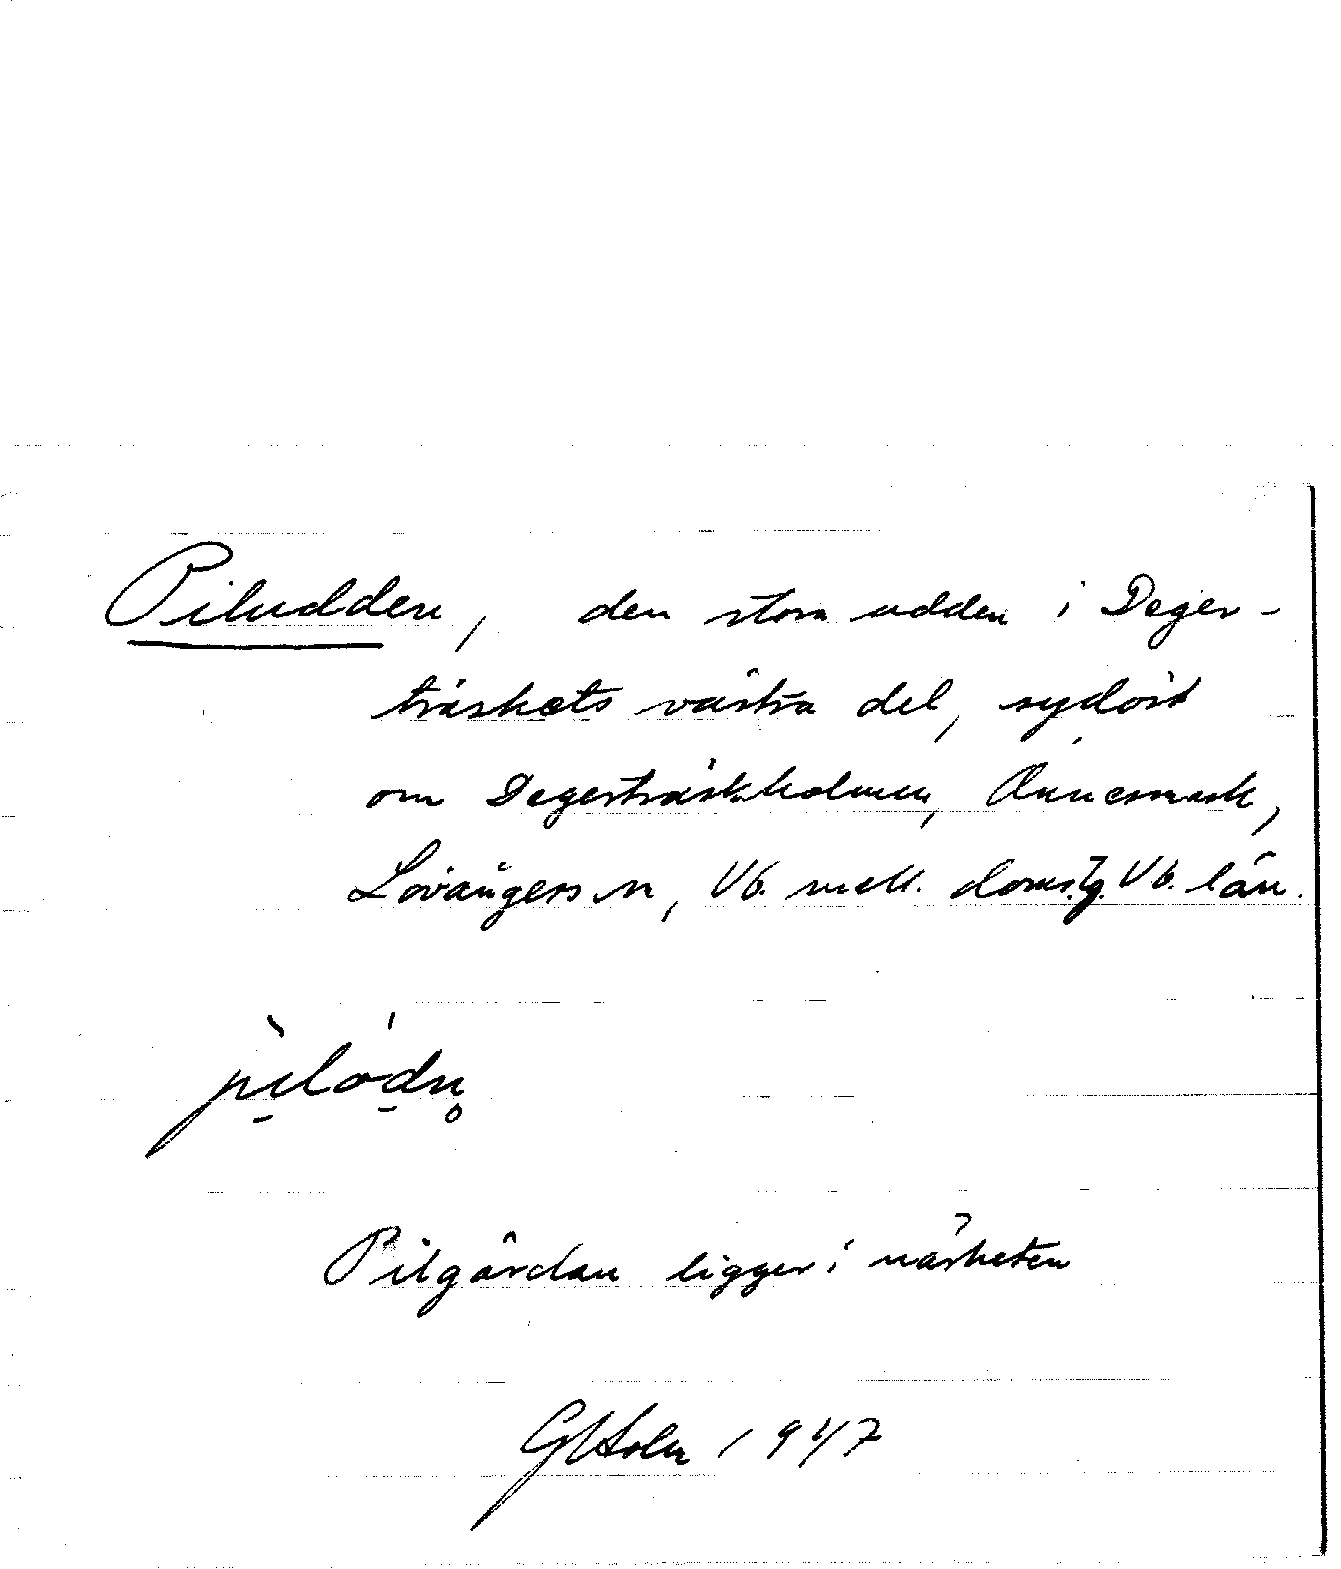 Piludden, den stora udden i Deger-
träskets västra del, sydöst
om Degerträskholmen, Önnesmark,
Lövångers sn, Vb. mell. doms.g. Vb. län.
pìlódn̥
Pilgårdan ligger i närheten
GHolm 1947